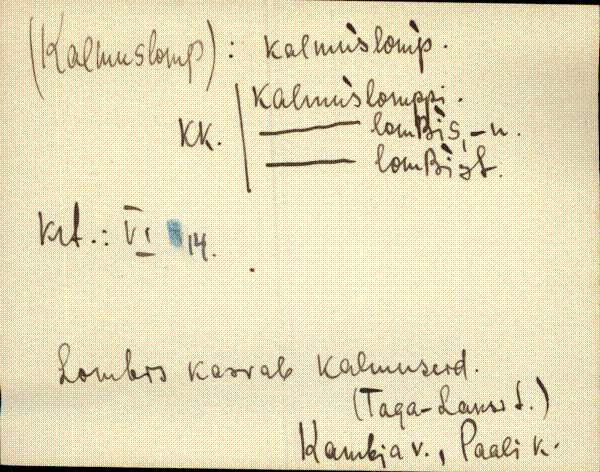 (Kalmuslomp): kalmùslomp̀.
kalmùslomppi.
KK. — lomBìs, -n.
— lomBìst.
Krt.: VI 14.
Lombis kasvab kalmuseid.
(Taga-      t.)
Kambja v., Paali k.